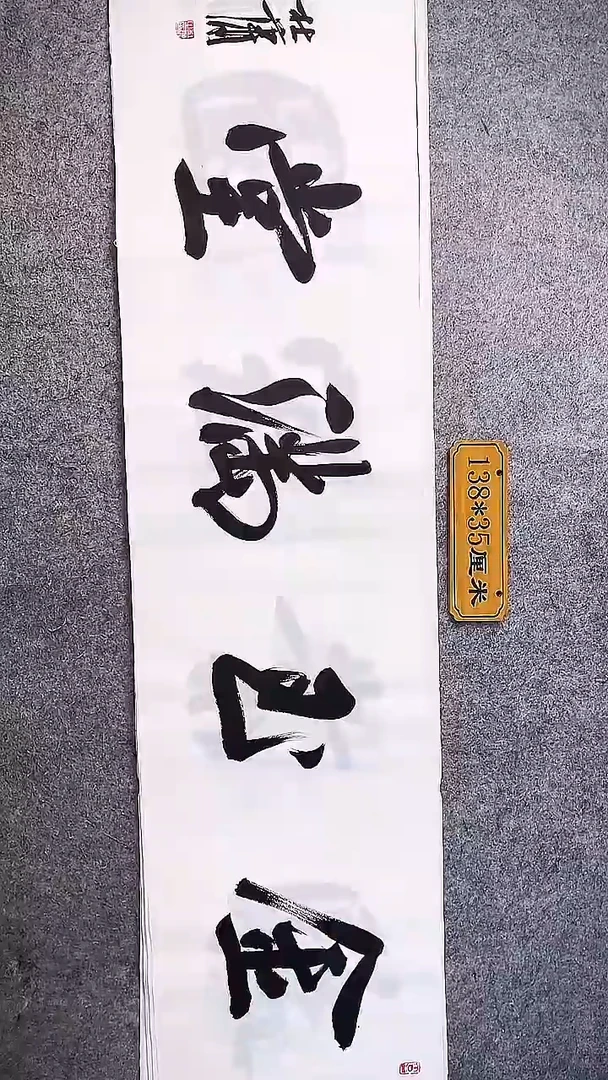 金玉满堂
138*35厘米